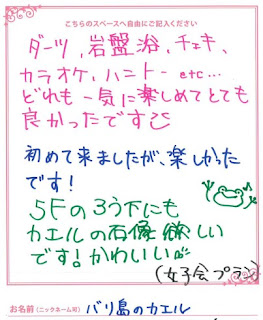 こちらのスペースへ自由にご記入ください
ダーツ、岩盤浴、チェキ、
カラオケ、ハニトー etc...
どれも一気に楽しめてとても
良かったです
初めて来ましたが、楽しかった
です!
5Fのろう下にも
カエルの石像欲しい
です!かわいい
(女子会プラン)
お名前(ニックネーム可) バリ島のカエル